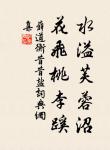 水溢芙蓉沼
花飛桃李蹊
薛道衡昔昔鹽詞典網
喜